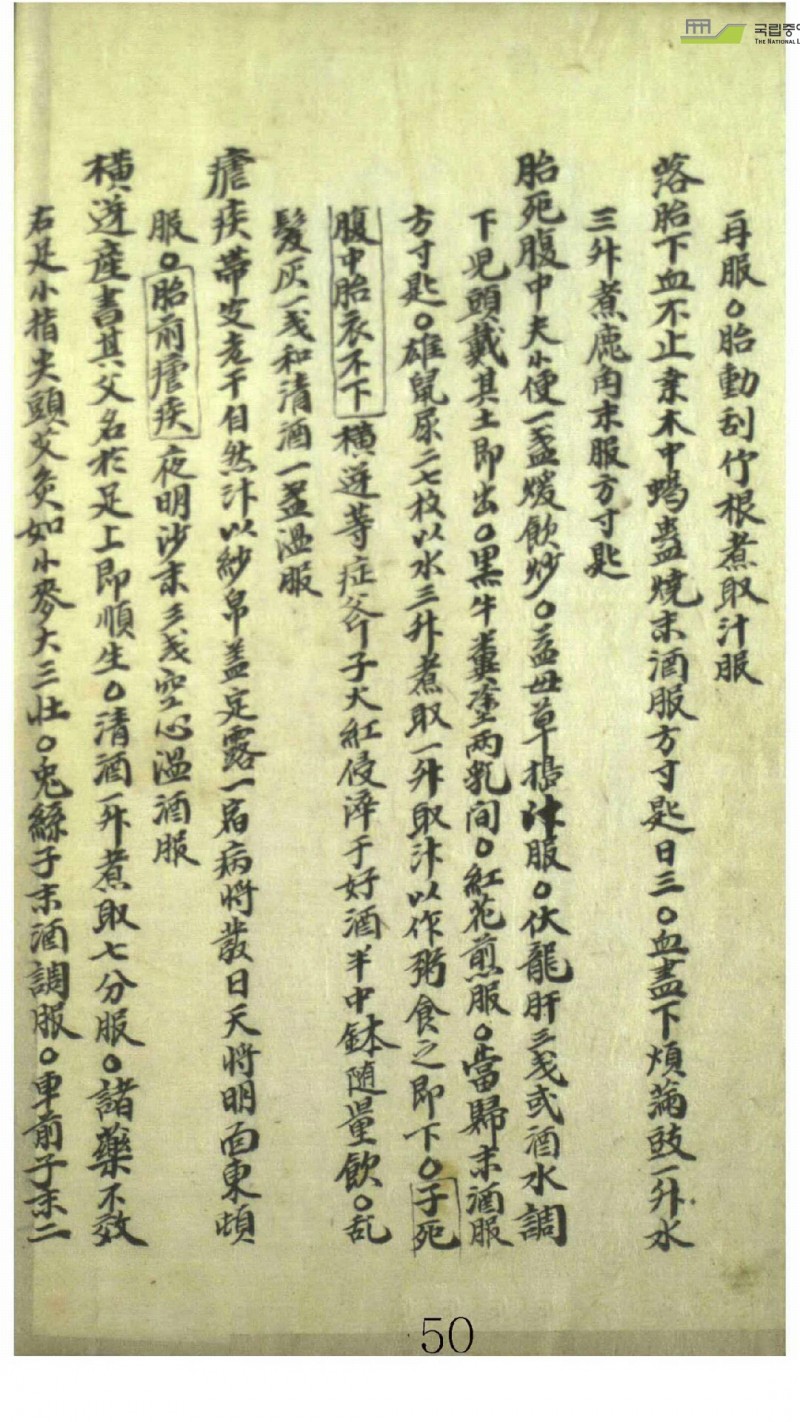 국립중
THE NATIONAL L
再服○胎動刮竹根煮取汁服
落胎下血不止桑木中蝎蟲燒末酒服方寸匙日三○血盡下煩滿豉一升水
三升煮鹿角末服方寸匙
胎死腹中夫小便一盞煖飮妙○益母草搗汁服○伏龍肝三戔或酒水調
下兒頭戴其土即出○黑牛糞塗兩乳间○紅花煎服○當歸末酒服
方寸匙○雄鼠尿二七枚以水三升煮取一升取汁以作粥食之即下○子死
腹中胎衣不下横逆等症 子大紅侵淬于好酒半中鉢随量飮○乱
髮灰一戔和清酒一盞温服
瘧疾常安老干自然汁以紗帛盖定露一宿病將發日天將明面東頓
服○胎前瘧疾夜明沙末三戔空心温酒服
横逆產書其父名於足上即順生○清酒一升煮取七分服○諸藥不效
右足小指尖頭艾灸如小麥大三壯○兎絲子末酒調服○車前子末二
50